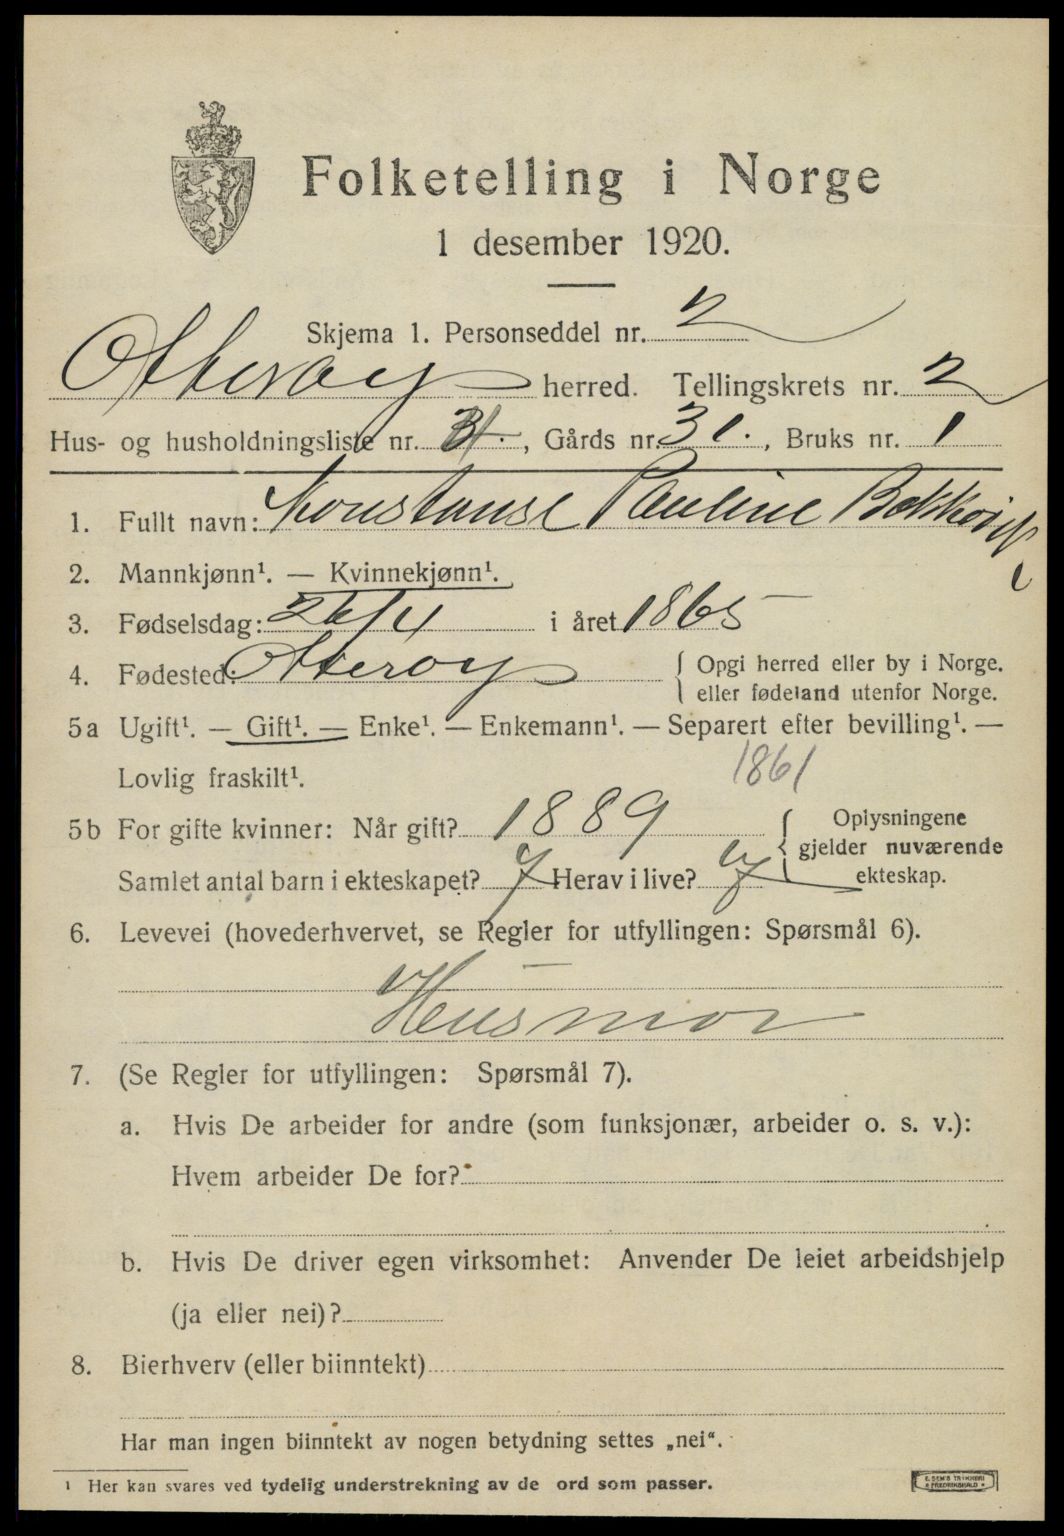 Folketelling i Norge
1 desember 1920.
Skjema 1. Personseddel nr. 2
Otterøy herred. Tellingskrets nr. 2
Hus- og husholdningsliste nr. , Gårds nr. 31. , Bruks nr. 1
1. Fullt navn: Konstanse Pauline
2. Mannkjønn¹. — Kvinnekjønn¹.
3. Fødselsdag: 26/4 i året 1865
4. Fødested: Otterøy { Opgi herred eller by i Norge.
eller fødeland utenfor Norge.
5a Ugift¹. — Gift¹. — Enke¹. — Enkemann¹. — Separert efter bevilling¹. —
Lovlig fraskilt¹. 1861
5b For gifte kvinner: Når gift? 1889 { Oplysningene
gjelder nuværende
ekteskap.
Samlet antal barn i ekteskapet? 7 Herav i live?
6. Levevei (hovederhvervet, se Regler for utfyllingen: Spørsmål 6).
Husmor
7. (Se Regler for utfyllingen: Spørsmål 7).
a. Hvis De arbeider for andre (som funksjonær, arbeider o. s. v.):
Hvem arbeider De for?
b. Hvis De driver egen virksomhet: Anvender De leiet arbeidshjelp
(ja eller nei)?
8. Bierhverv (eller biinntekt)
Har man ingen biinntekt av nogen betydning settes „nei“.
¹ Her kan svares ved tydelig understrekning av de ord som passer.
E. SEM'S TRYKKERI
FREDRIKSHALD